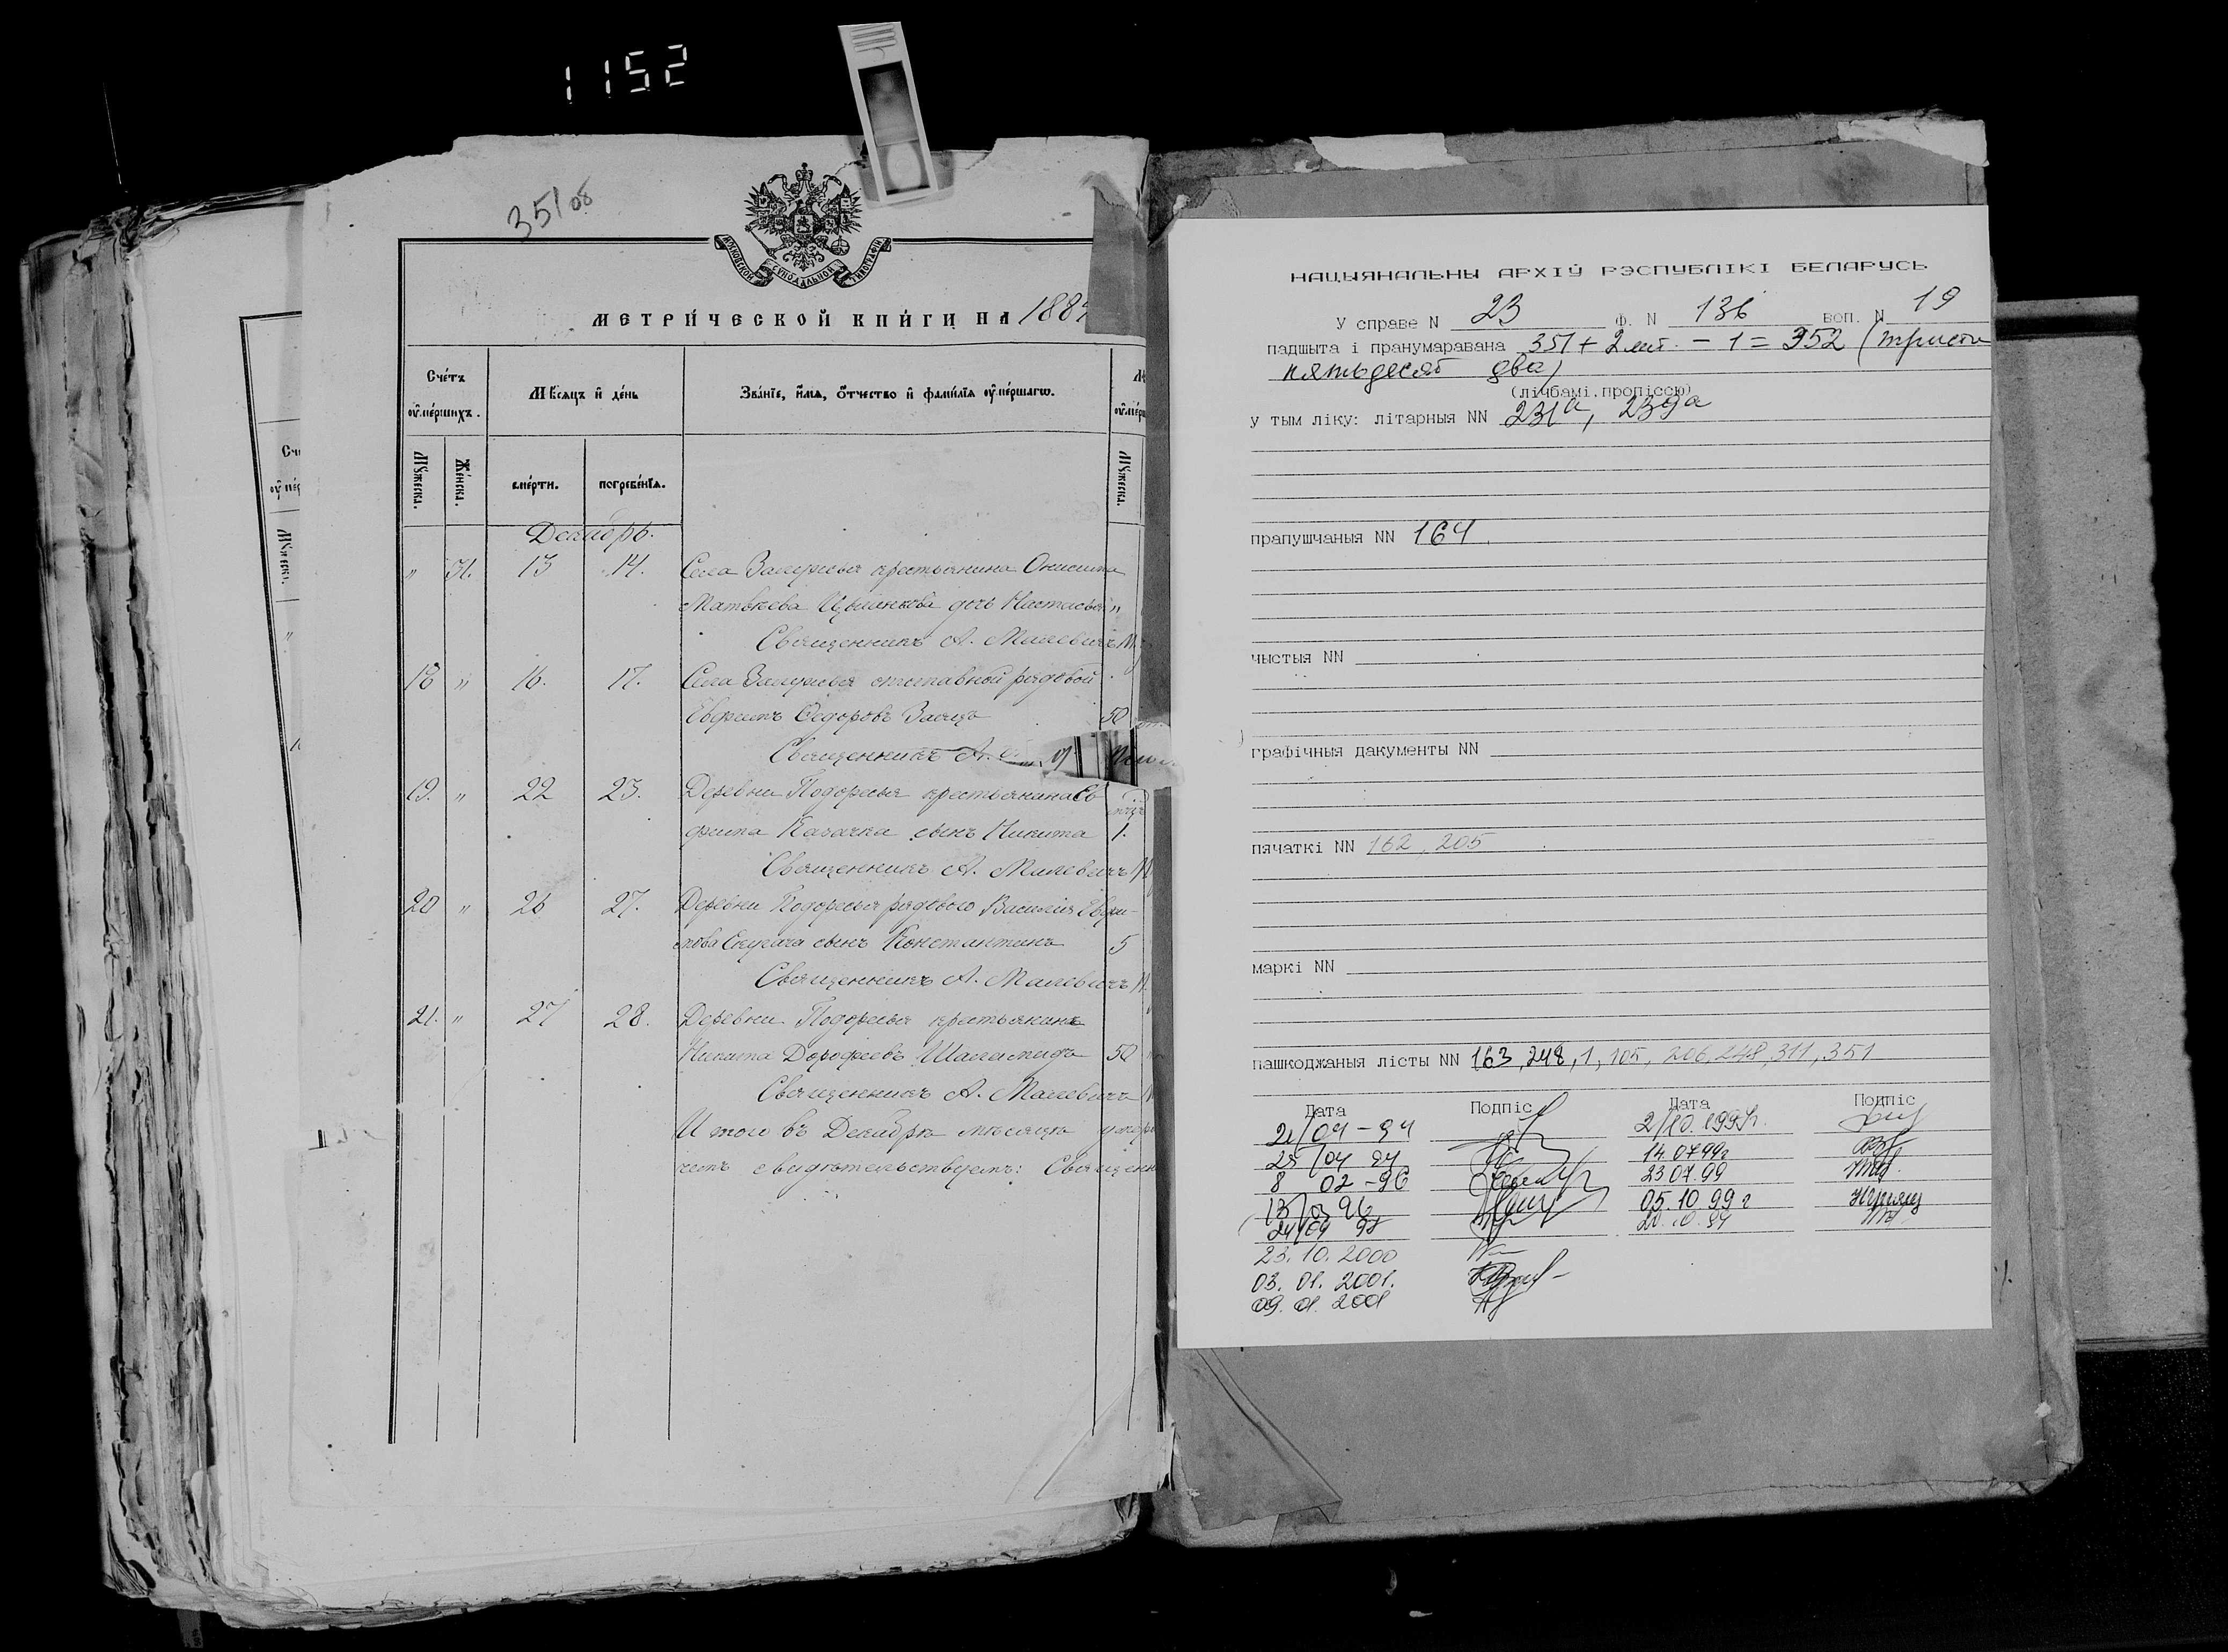 1152
351 об
МОСКОВСКОЙ СѴНОДАЛЬНОЙ ТИПОГРАФІИ
МЕТРИ́ЧЕСКОЙ КНИ́ГИ НА 188
Сче́тъ оу҆ме́ршихъ.
Мѣ́сяцъ и҆ де́нь
Зва́нїе, и҆́мѧ, ѻ҆́тчество и҆ фами́лїѧ оу҆ме́ршагѡ.
Мꙋ́жеска.
Же́нска.
сме́рти.
погребе́нїѧ.
Мꙋ́жеска.
Декабрь.
" 31. 13 14. Села Залужья крестьянина Онисима
Матвѣева дочь Настасья "
Священникъ А. Малевичъ
18 " 16. 17. Села Залужья отставной рядовой
Евфимъ Ѳедоровъ Заяцъ 50
Священникъ А.
19. " 22 23. Деревни Подоресья крестьянина Ев
фима Казачка сынъ Никита 1.
Священникъ А. Малевичъ
20 " 26 27. Деревни Подоресья рядового Василія Евфи-
мова сынъ Константинъ 5
Священникъ А. Малевичъ
21. " 27 28. Деревни Подоресья крестьянинъ
Никита Дорофеевъ 50
Священникъ А. Малевичъ
Итого въ Декабрѣ мѣсяцѣ умер
чемъ свидѣтельствуемъ: Священн
НАЦЫЯНАЛЬНЫ АРХІЎ РЭСПУБЛІКІ БЕЛАРУСЬ
У справе N 23 ф. N 136 воп. N 19
падшыта і пранумаравана 351 + 2 лит. - 1 = 352 (триста
пятьдесят два)
(лічбамі, пропіссю)
у тым ліку: літарныя NN 231а, 239а
прапушчаныя NN 164.
чыстыя NN
графічныя дакументы NN
пячаткі NN 162, 205
маркі NN
пашкоджаныя лісты NN 163, 248, 1, 105, 206, 248, 311, 351
Дата Подпіс Дата Подпіс
21/04-94 2/10.1997г.
25/04 94 14.07 99г
8 02-96 23 07.99
13/03 96 05.10 99г
24/04 98 20.10.99
23.10.2000
03.01.2001.
09.01.2001